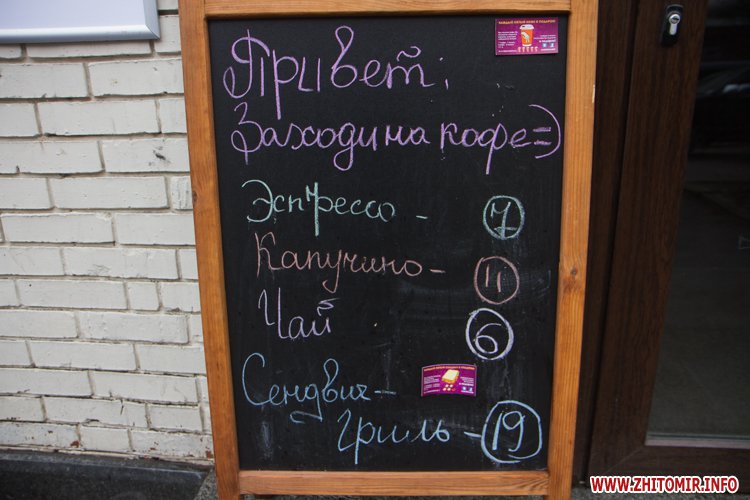 КАЖДЫЙ ПЯТЫЙ КОФЕ В ПОДАРОК!
Привет!
Заходи на кофе =)
Эспрессо - 7
Капучино - 11
Чай 6
Сендвич -
гриль - 19
WWW.ZHITOMIR.INFO